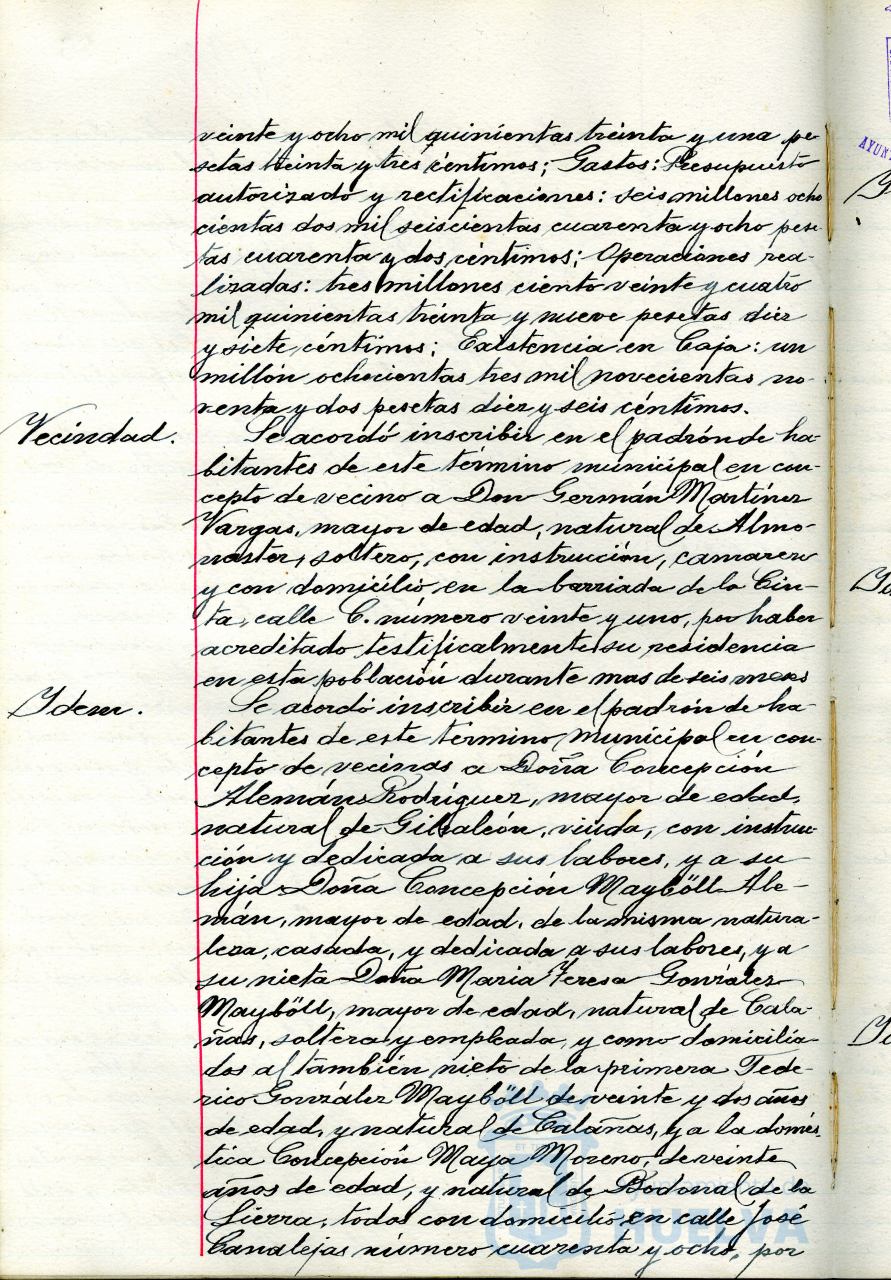 veinte y ocho mil quinientas treinta y una pe-
setas treinta y tres céntimos; Gastos: Presupuesto
autorizado y rectificaciones: seis millones ocho
cientas dos mil seiscientas cuarenta y ocho pese-
tas cuarenta y dos céntimos; Operaciones rea-
lizadas: tres millones ciento veinte y cuatro
mil quinientas treinta y nueve pesetas diez
y siete céntimos; Existencia en Caja: un
millón ochocientas tres mil novecientas no-
venta y dos pesetas diez y seis céntimos.
Vecindad.
Se acordó inscribir en el padrón de ha-
bitantes de este término municipal en con-
cepto de vecino a Don Germán Martínez
Vargas, mayor de edad, natural de Almo-
naster, soltero, con instrucción, camarero
y con domicilio, en la barriada de la Cin-
ta, calle C. número veinte y uno, por haber
acreditado testificalmente su residencia
en esta población durante mas de seis meses
Idem.
Se acordó inscribir en el padrón de ha-
bitantes de este término municipal en con-
cepto de vecinas a Doña Concepción
Alemán Rodríguez, mayor de edad,
natural de Gibraleón, viuda, con instru-
ción y dedicada a sus labores, y a su
hija Doña Concepción Mayböll Ale-
mán, mayor de edad, de la misma natura-
leza, casada, y dedicada a sus labores, y a
su nieta Doña Maria Teresa González
Mayböll, mayor de edad, natural de Cala-
ñas, soltera y empleada, y como domicilia-
dos al también nieto de la primera Fede-
rico González Mayböll de veinte y dos años
de edad, y natural de Calañas, y a la domés-
tica Concepción Maya Moreno, de veinte
años de edad, y natural de Bodonal de la
Sierra, todos con domicilio en calle José
Canalejas número cuarenta y ocho, por
Ayuntamiento de
HUELVA
AYUN